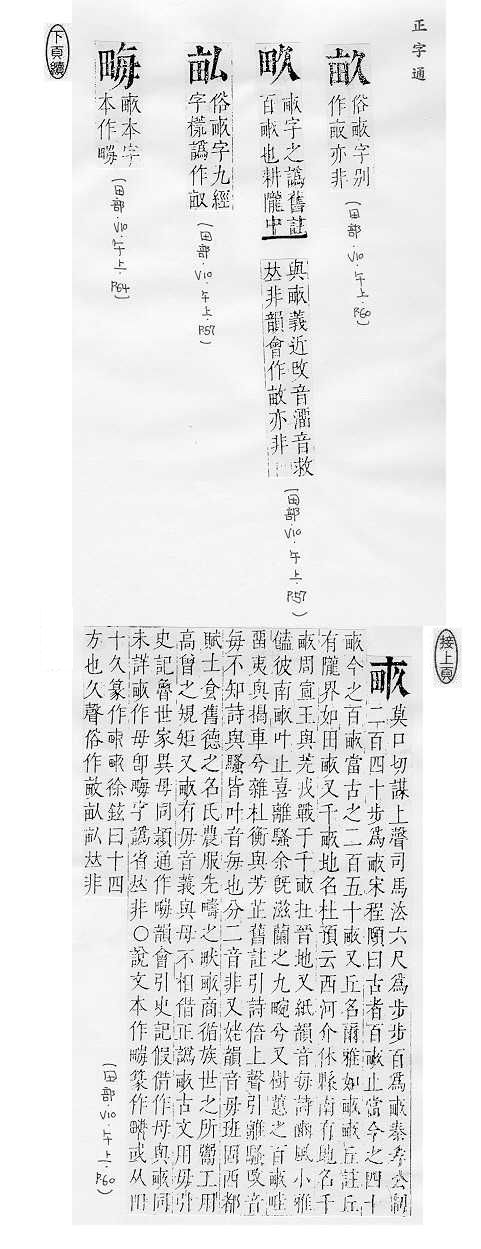 正字通
畝
俗畞字别
作畝亦非
(田部·V10·午上·P.60)
畞字之譌舊註
百畞也耕隴中
與畞義近改音澑音救
𠀤非韻會作畝亦非
(田部·V10·午上·P.57)
俗畞字九經
字㨪譌作
(田部·V10·午上·P.57)
畮
畞本字
本作畮
(田部·V10·午上·P.64)
下頁續
接上頁
畞
莫口切謀上聲司馬法六尺爲步步百爲畞秦孝公制
二百四十步爲畞宋程頤曰古者百畞止當今之四十
畞今之百畞當古之二百五十畞又丘名爾雅如畞畞丘註丘
有隴界如田畞又千畞地名杜預云西河介休縣南有地名千
畞周宣王與羌戎戰于千畞在晉地又紙韻音每詩豳風小雅
饁彼南畞叶止喜離騷余旣滋蘭之九畹兮又樹蕙之百畞畦
畱夷與揭車兮雜杜衡與芳芷舊註引詩倍上聲引離騷改音
每不知詩與騷皆叶音每也分二音非又姥韻音母班固西都
賦士食舊德之名氏農服先疇之畎畞商循族世之所鬻工用
高曾之規矩又畞有母音義與母不相借正譌畞古文用母引
史記魯世家異母同穎通作畮韻會引史記假借作母與畞同
未詳畞作母卽畮字譌省𠀤非〇說文本作畮篆作畮或从田
十久篆作畞畞徐鉉曰十四
方也久聲俗作畝𠀤非
(田部·V10·午上·P.60)